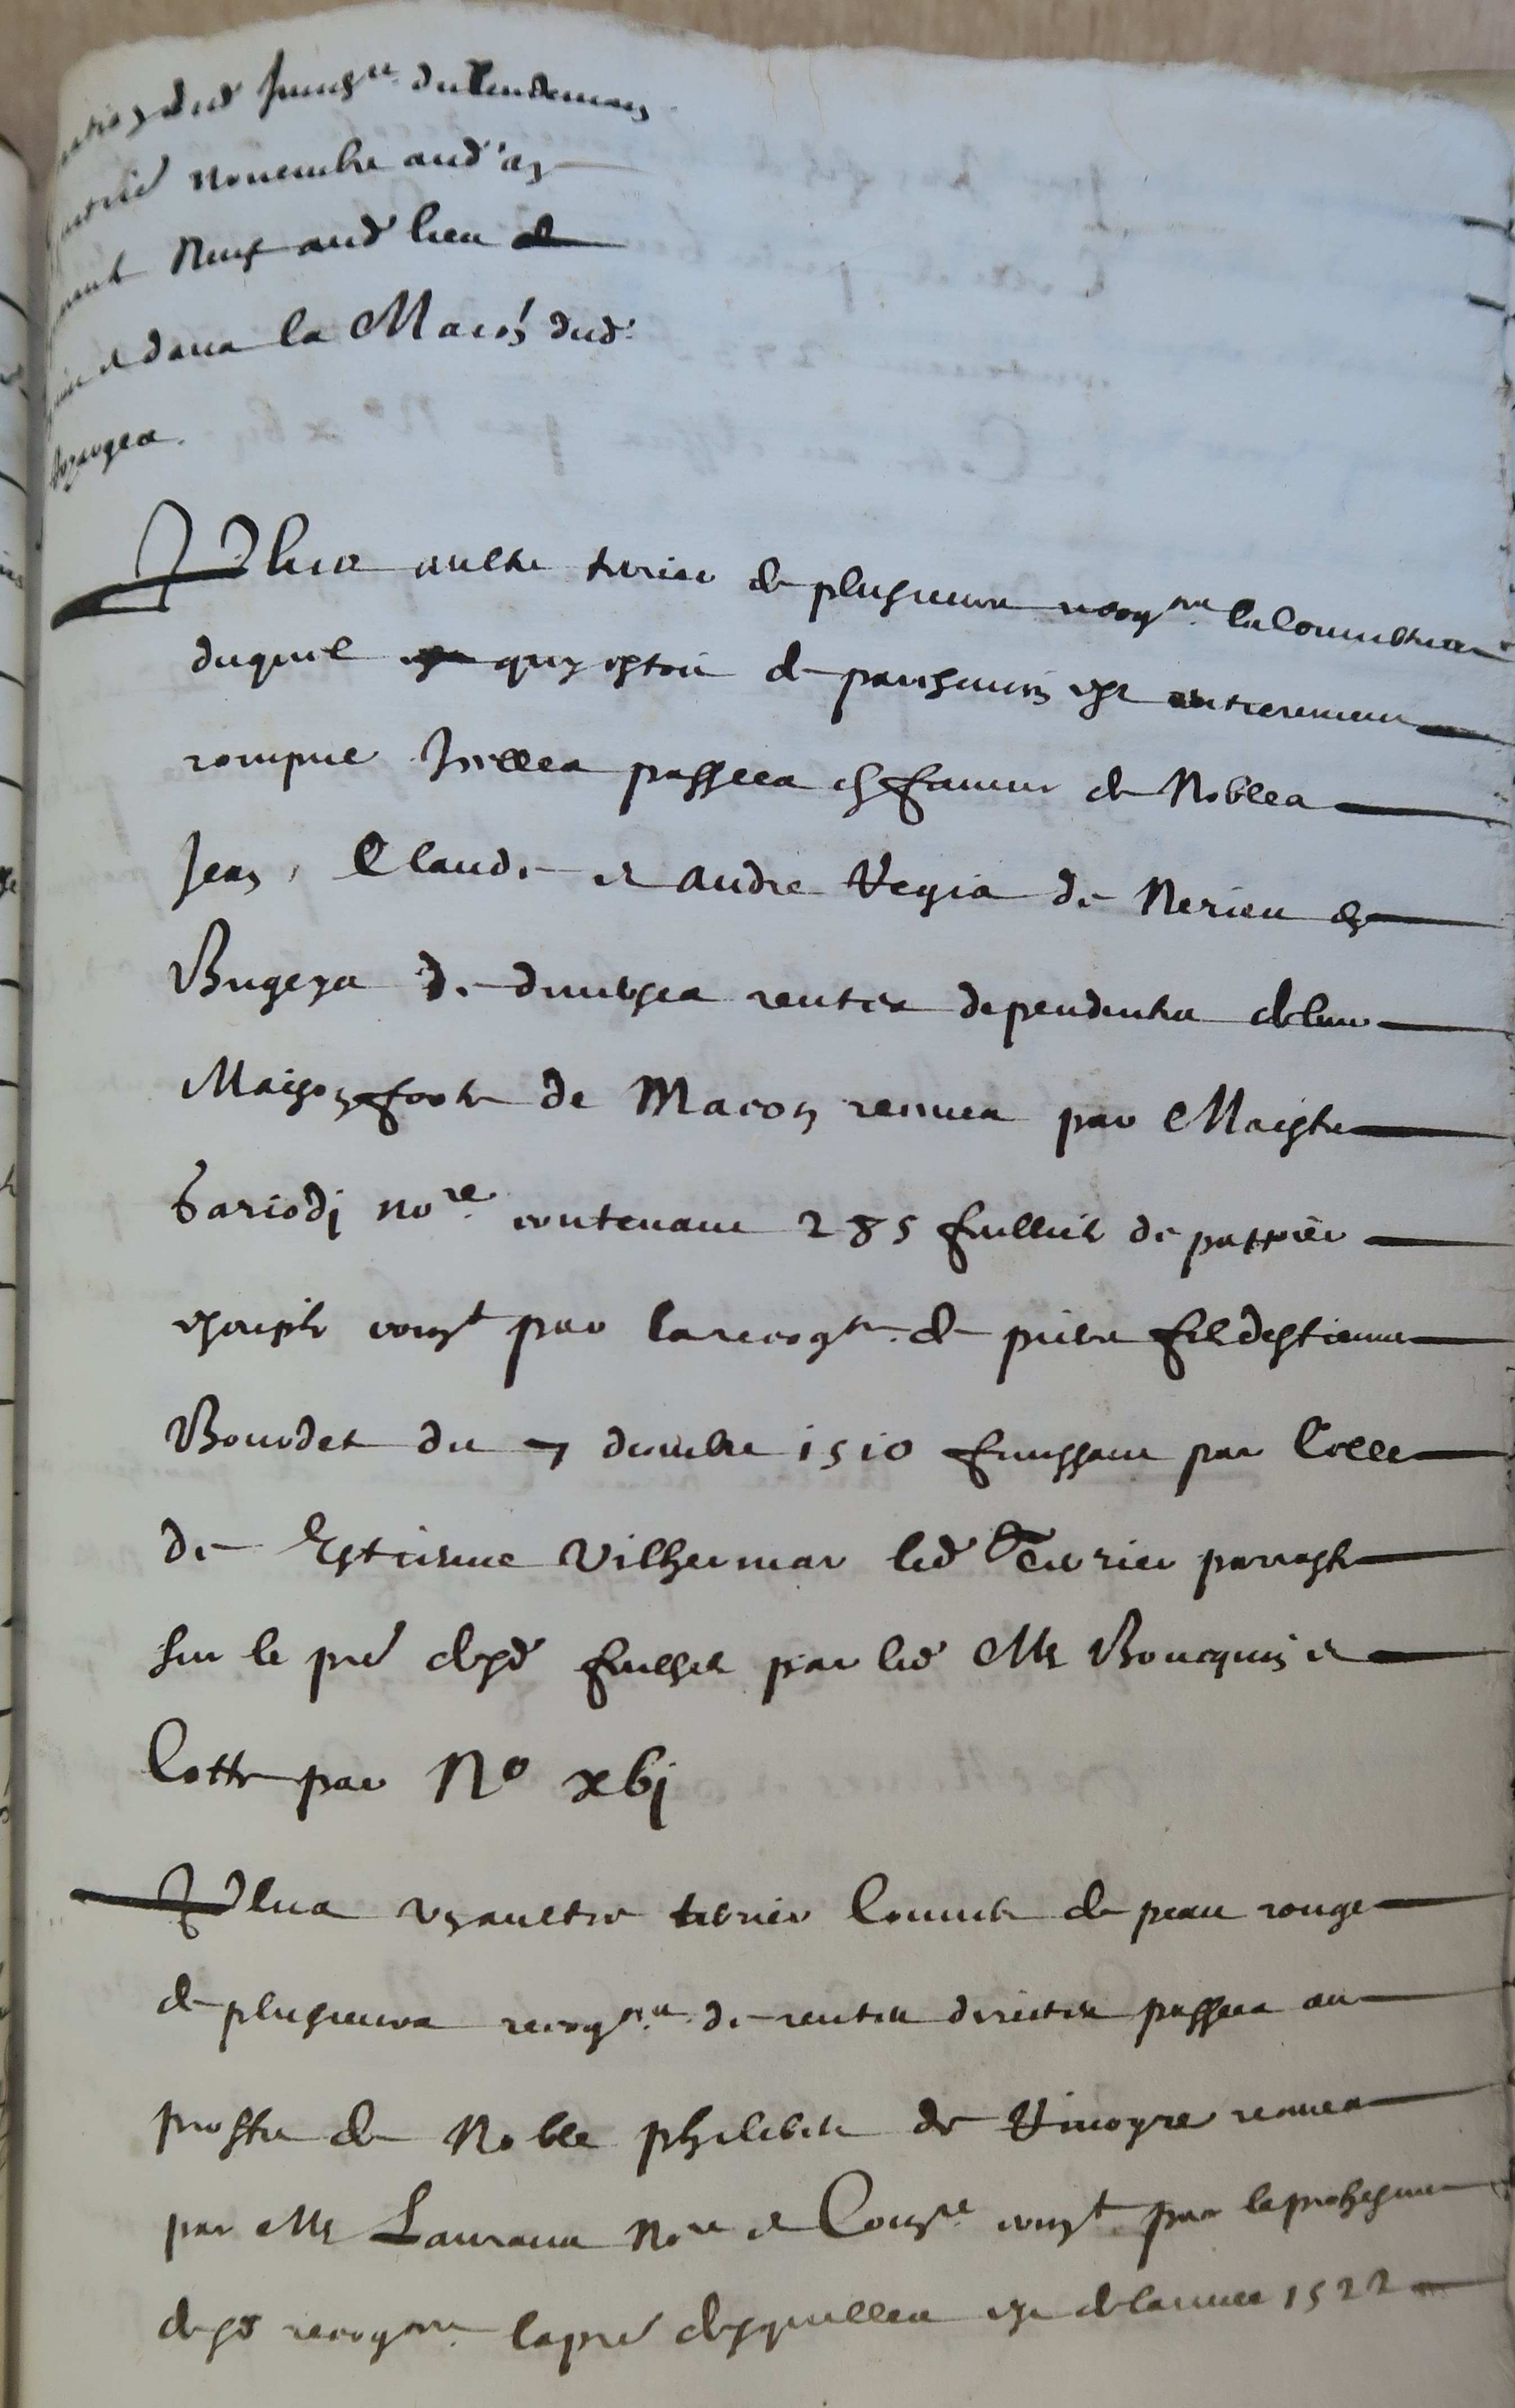 dud Invre du lendemain
novembre aud' an
neuf aud lieu de
et dans la Maison dud.
Plus aultre terrier de plusieurs recognces la couverture
duquel quy estoit de parchemin est entierement
rompue Icelles passees en faveur de Nobles
Jean, Claude et andre de Nerieu en
Bugeys de diverses rentes dependentes de leur
Maison forte de Macon receues par Maistre
Sariodj nore contenant 285 feulliets de pappier
escripts comt par la recogce de pierre fils destienne
Bourdet du 7 decembre 1510 finissant par celle
de Estienne Vilhermar led Terrier parraphe
sur le pre desd feullets par led Me Bourquin et
Cotte par No xbj
Plus un aultre terrier couvert de peau rouge
de plusieurs recognces de rentes directes passees au
proffit de Noble philibert de receues
par Me Laurans nore et comt par le prohesme
desd recognces la pre desquelles est de lannee 1522